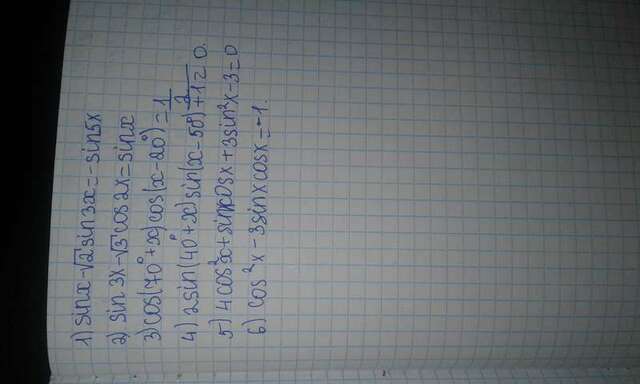 1) sinx - √2 sin 3x = - sin5x
2) sin 3x - √3 cos 2x = sinx
3) cos(70° + x) cos(x - 20°) = 1/2
4) 2 sin(40° + x) sin(x - 50°) + 1 = 0.
5) 4 cos²x + sinxcosx + 3sin²x - 3 = 0
6) cos²x - 3sinx cosx = -1.